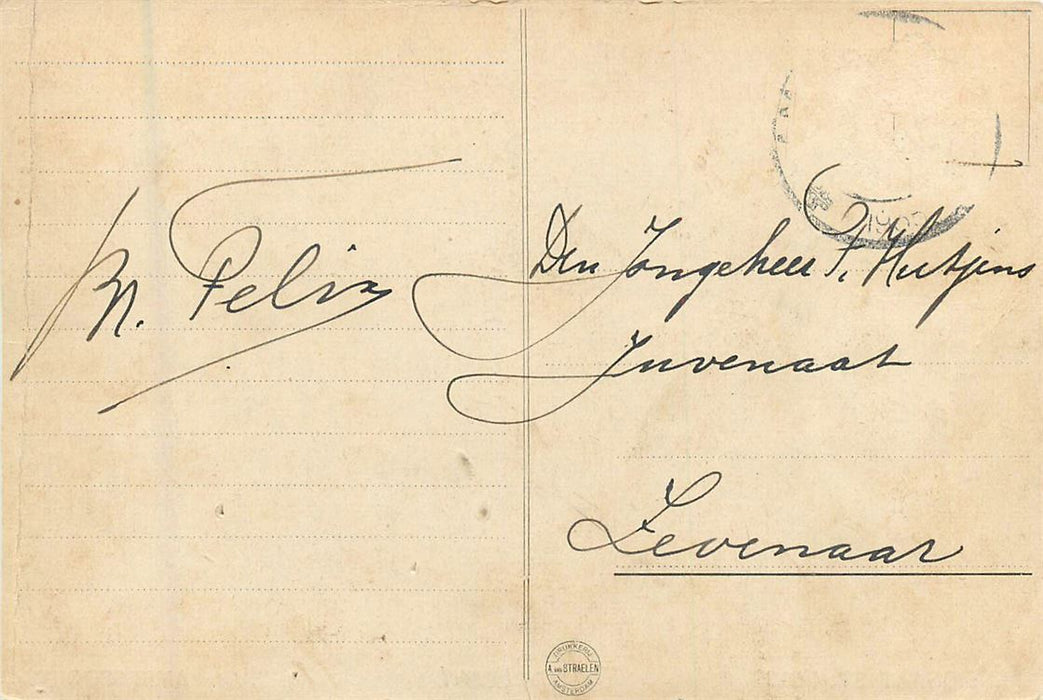 Br. Felix
Den Jongeheer F. Hutjens
Juvenaat
Zevenaar
DRUKKERIJ
A. VAN STRAELEN
AMSTERDAM